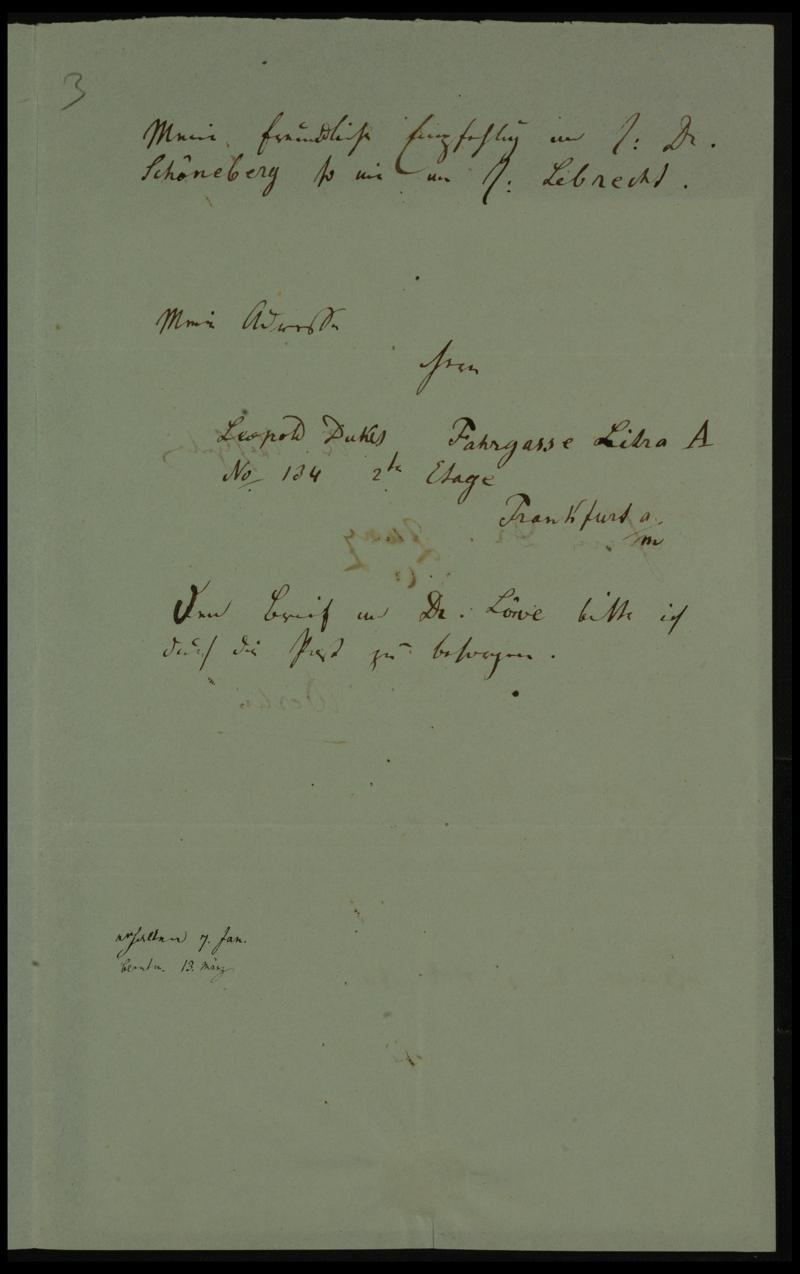 3
Meine freundliche Empfehlung an H: Dr.
Schöneberg so wie an H: Lebrecht.
Meine Adresse
Herrn
Leopold Dukes Fahrgasse Litra A
No 134 2te Etage
Frankfurt a.
m
Den Brief an Dr. Löwe bitte ich
durch die Post zu besorgen.
erhalten 7. Jan.
beantw. 13. März